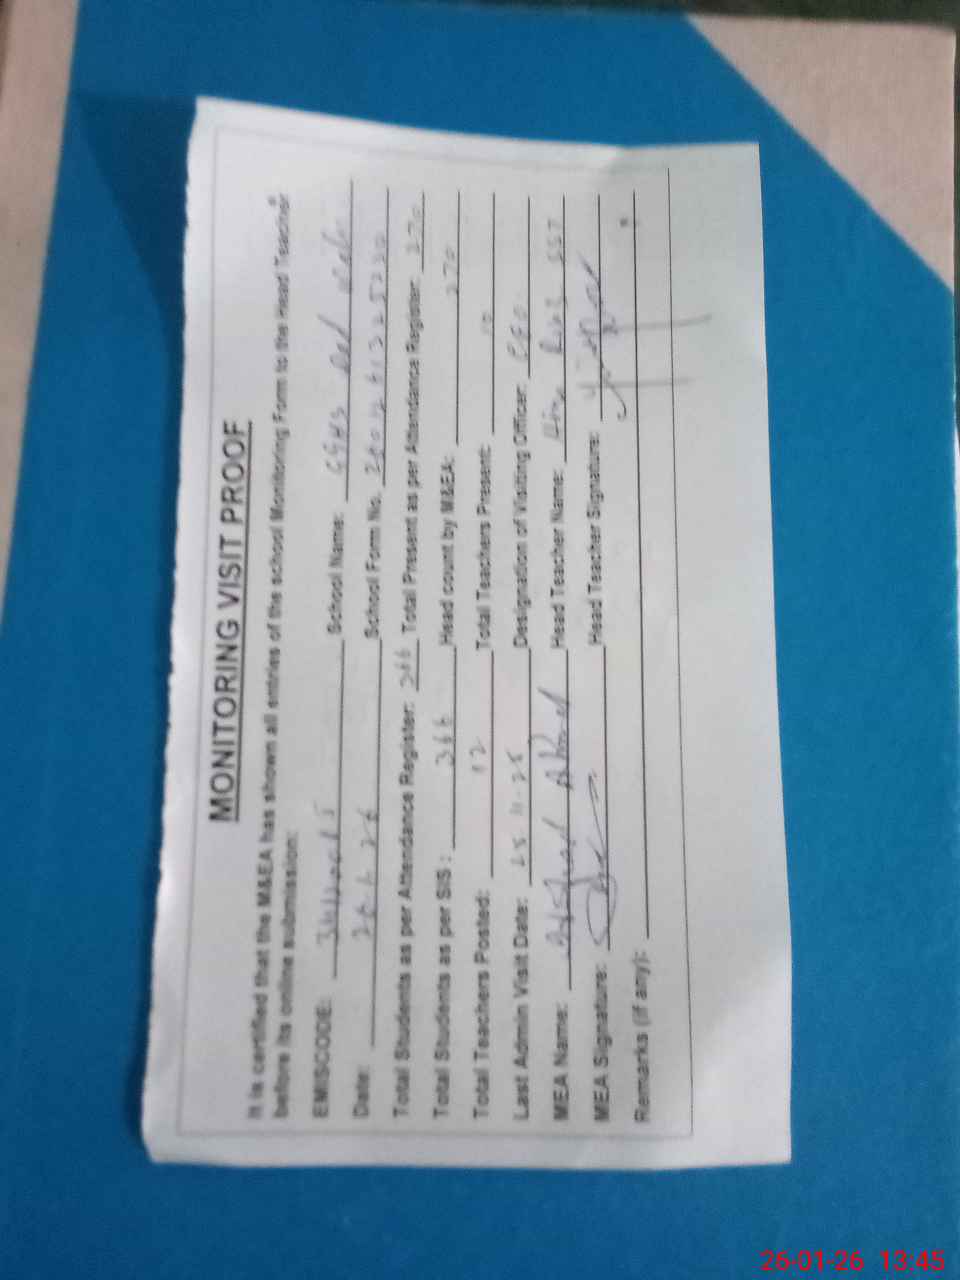 MONITORING VISIT PROOF
It is certified that the M&EA has shown all entries of the school Monitoring Form to the Head Teacher
before its online submission:
EMISCODE: School Name: GGHS
Date: 26-1-26 School Form No.
Total Students as per Attendance Register: 366 Total Present as per Attendance Register: 270
Total Students as per SIS: 366 Head count by M&EA: 270
Total Teachers Posted: 12 Total Teachers Present: 10
Last Admin Visit Date: 25-11-25 Designation of Visiting Officer:
MEA Name: Ahmed Head Teacher Name: SST
MEA Signature: Head Teacher Signature:
Remarks (if any):
26-01-26 13:45